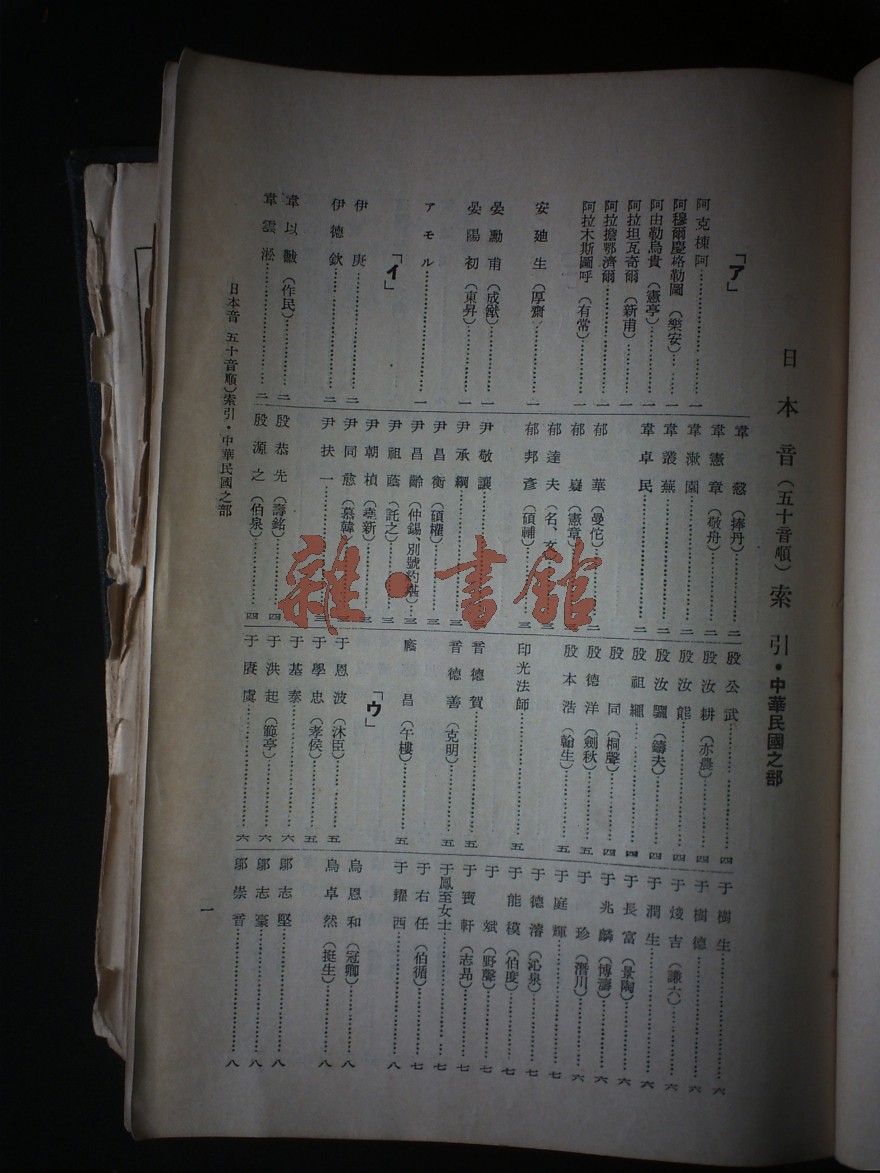 日本音（五十音順）索引・中華民國之部
「ア」
阿克棟阿……一
阿穆爾慶格勒圖（樂安）……一
阿由勒烏貴（憲亭）……一
阿拉坦瓦奇爾（新甫）……一
阿拉擔鄂濟爾……一
阿拉木斯圖呼（有常）……一
安廸生（厚齋）……一
晏勳甫（成猷）……一
晏陽初（東昇）……一
アモル……一
「イ」
伊庚……二
伊德欽……二
韋以黻（作民）……二
韋雲淞……二
韋愨（捧丹）……二
韋憲章（敬舟）……二
韋漱園……二
韋叢蕪……二
韋卓民……二
郁華（曼佗）……二
郁嶷（憲章）
郁達夫（名、文
郁邦彥（碩輔）……三
尹敬讓
尹承綱……三
尹昌衡（碩權）……三
尹昌齡（仲錫、別號約堪）……三
尹祖蔭（託之）……三
尹朝楨（堯新）……三
尹同愈（慕韓）……三
尹扶一……三
殷恭先（壽銘）……四
殷源之（伯泉）……四
殷公武……四
殷汝耕（亦農）……四
殷汝熊……四
殷汝驪（鑄夫）……四
殷祖繩……四
殷同（桐聲）……四
殷德洋（劍秋）……五
殷本浩（翰生）……五
印光法師……五
普德賀……五
普德善（克明）……五
廕昌（午樓）……五
「ウ」
于恩波（沐臣）……五
于學忠（孝侯）……五
于基泰……六
于洪起（範亭）……六
于賡虞……六
于樹生……六
于樹德……六
于焌吉（謙六）……六
于潤生……六
于長富（景陶）……六
于兆麟（博濤）……六
于珍（濳川）……六
于庭輝……七
于德濬（沁泉）……七
于能模（伯度）……七
于斌（野聲）……七
于寶軒（志昂）……七
于鳳至女士……七
于右任（伯循）……七
于耀西……八
烏恩和（冠卿）……八
烏卓然（挺生）……八
鄔志堅……八
鄔志豪……八
鄔崇音……八
日本音（五十音順）索引・中華民國之部
一
雜・書館